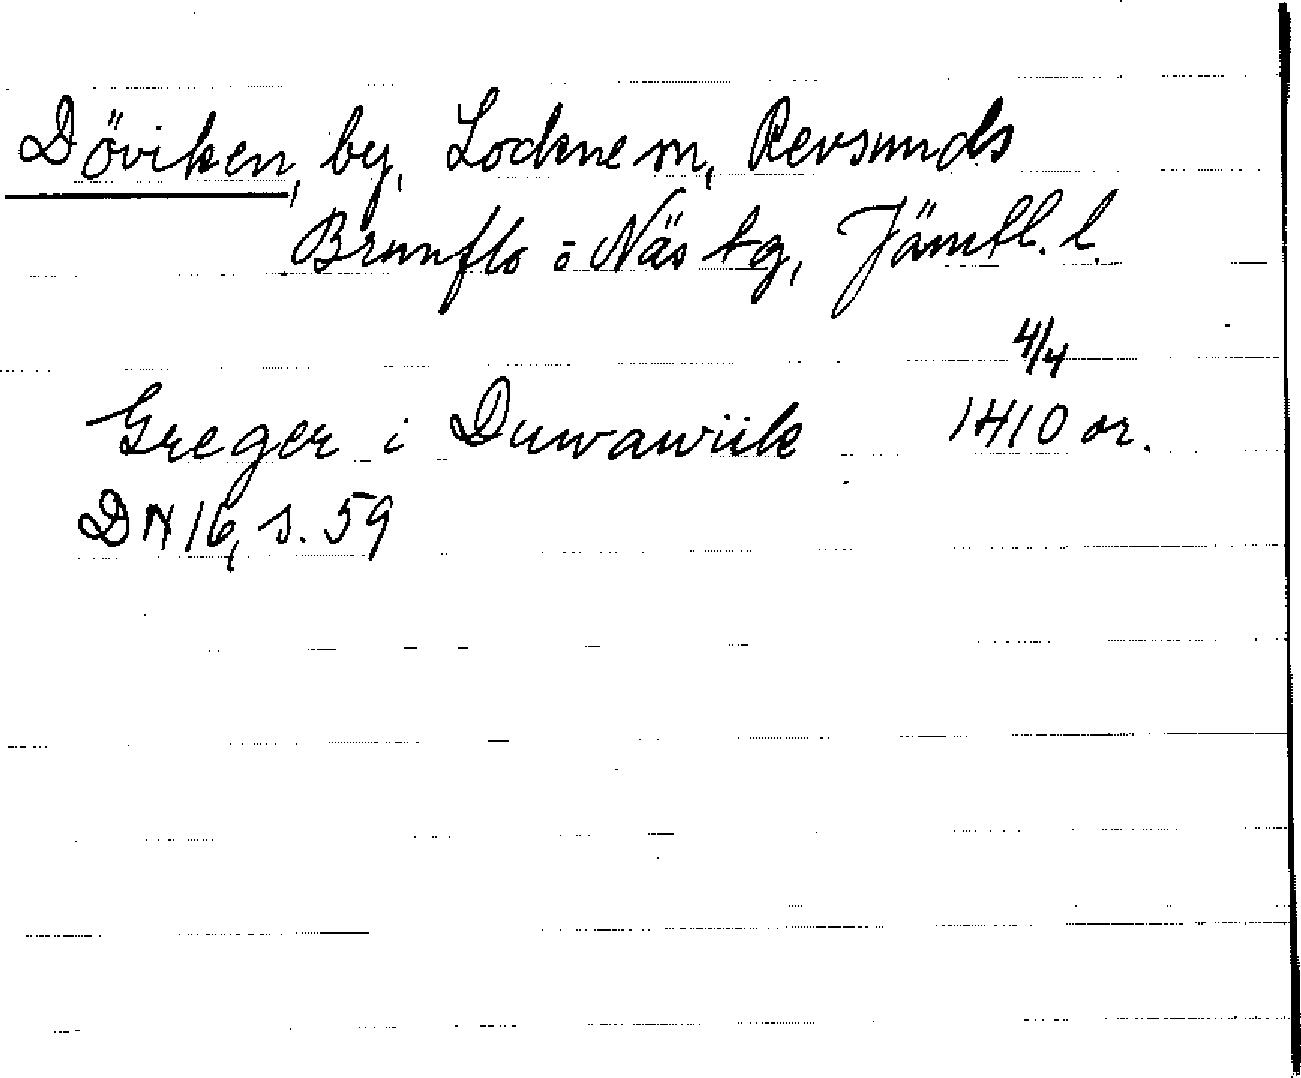 Döviken, by, Lockne sn, Revsunds
Brunflo o Näs tg, Jämtl. l.
4/4
Greger i Duwawiik 1410 or.
DN 16, s. 59